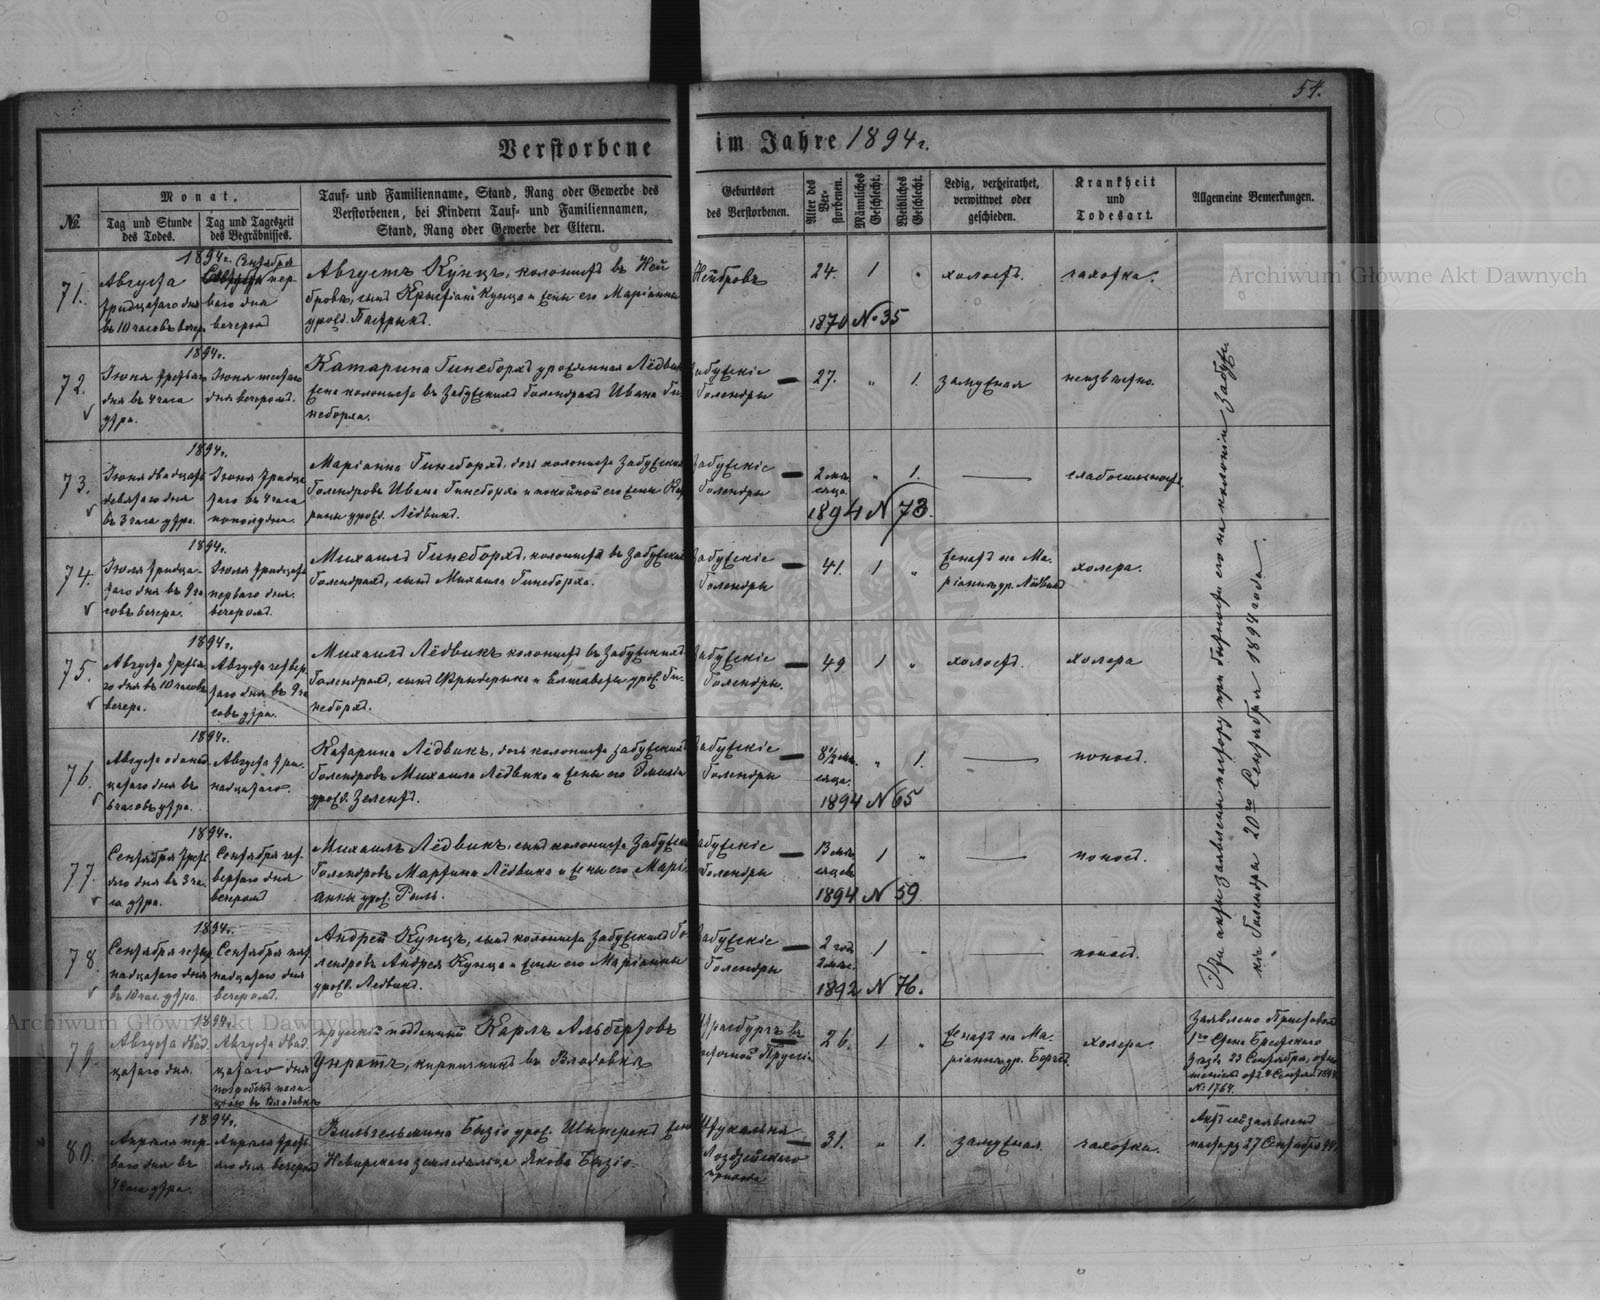 54.
Verstorbene im Jahre 1894 г.
№.
Monat.
Tag und Stunde des Todes.
Tag und Tageszeit des Begräbnisses.
Tauf- und Familienname, Stand, Rang oder Gewerbe des
Verstorbenen, bei Kindern Tauf- und Familiennamen,
Stand, Rang oder Gewerbe der Eltern.
Geburtsort
des Verstorbenen.
Alter des Ver-
storbenen.
Männliches
Geschlecht.
Weibliches
Geschlecht.
Ledig, verheirathet,
verwittwet oder
geschieden.
Krankheit
und
Todesart.
Allgemeine Bemerkungen.
71.
1894 г. Сентября
Августа
тридцатаго дня
въ 10 часовъ вечер.
пер-
ваго дня
вечеромъ
Августъ Кунцъ, колонистъ въ Ней
бровъ, сынъ Кристіана Кунца и жены его Маріанны
урожд. Пастрыкъ.
Нейбровъ
24. 1 „
холостъ.
чахотка.
1870 № 35
72.
1894 г.
Іюня третьяго
дня въ 4 часа
утра.
Іюня шестаго
дня вечеромъ.
Катарина Гинсборхъ урожденная Лёдвикъ
жена колониста въ Забужскихъ Голендрахъ Ивана Ги-
нсборха.
Забужскіе
Голендры
27. „ 1.
замужная
неизвѣстно.
73.
1894 г.
Іюня двадцать
девятаго дня
въ 3 часа утра.
Іюня тридца-
таго въ 4 часа
пополудни.
Маріанна Гинсборхъ, дочь колониста Забужскихъ
Голендровъ Ивана Гинсборха и покойной его жены Ка-
рины урожд. Лёдвикъ.
Забужскіе
Голендры
2 мѣ-
сяца.
„ 1.
слабосильность.
1894 N 73.
74.
1894 г.
Іюля тридца-
таго дня въ 9 ча-
совъ вечера.
Іюля тридцать
перваго дня
вечеромъ.
Михаилъ Гинсборхъ, колонистъ въ Забужскихъ
Голендрахъ, сынъ Михаила Гинсборха.
Забужскіе
Голендры
41. 1 „
женатъ на Ма-
ріаннѣ ур. Лёдвикъ
холера.
75.
1894 г.
Августа третья-
го дня въ 10 часовъ
вечера.
Августа четвер-
таго дня въ 9 ча-
совъ утра.
Михаилъ Лёдвикъ колонистъ въ Забужскихъ
Голендрахъ, сынъ Фрыдерыка и Елисаветы урож. Ги-
нсборхъ.
Забужскіе
Голендры.
49 1 „
холостъ.
холера
76.
1894 г.
Августа одинад-
цатаго дня въ
6 часовъ утра.
Августа три-
надцатаго.
Катарина Лёдвикъ, дочь колониста Забужскихъ
Голендровъ Михаила Лёдвика и жены его Эмиліи
урожд. Зелентъ.
Забужскіе
Голендры
8½ мѣ-
сяца.
„ 1.
поносъ.
1894 N 65
77.
1894 г.
Сентября треть-
яго дня въ 3 ча-
са утра.
Сентября чет-
вертаго дня
вечеромъ
Михаилъ Лёдвикъ, сынъ колониста Забужскихъ
Голендровъ Мартина Лёдвика и жены его Марі-
анны урож. Рыль.
Забужскіе
Голендры
13 мѣ-
сяцевъ
1 „
поносъ.
1894 N 59
78.
1894 г.
Сентября четыр-
надцатаго дня
въ 10 час. утра.
Сентября пят-
надцатаго дня
вечеромъ.
Андрей Кунцъ, сынъ колониста Забужскихъ Го-
лендровъ Андрея Кунца и жены его Маріанны
урожд. Ледвикъ.
Забужскіе
Голендры
2 год.
2 мѣс.
1 „
поносъ.
1892 N 76.
Эти акты заявлены пастору при бытности его на колоніи Забужс-
кіе Голендры 20го Сентября 1894 года.
79.
1894 г.
Августа двад-
цатаго дня.
Августа двад-
цатаго дня
Прусскій подданный Карлъ Альбертовъ
Унратъ, кирпичникъ въ Влодавкѣ
въ
26. 1 „
женатъ на Ма-
ріаннѣ ур. Бергъ.
холера.
Заявлено Приставомъ
1го Стана Брестскаго
уѣзд. 23 Сентября,
№ 1764.
80.
1894 г.
Апрѣля пер-
ваго дня въ
4 часа утра.
Апрѣля треть-
яго дня вечеромъ
Вильгельмина Бызіо урож. жена
земледѣльца Якова Бызіо.
прихода
31. „ 1.
замужняя.
чахотка.
Актъ сей заявленъ
пастору 27 Сентября 94 г.
Archiwum Główne Akt Dawnych
Archiwum Główne Akt Dawnych